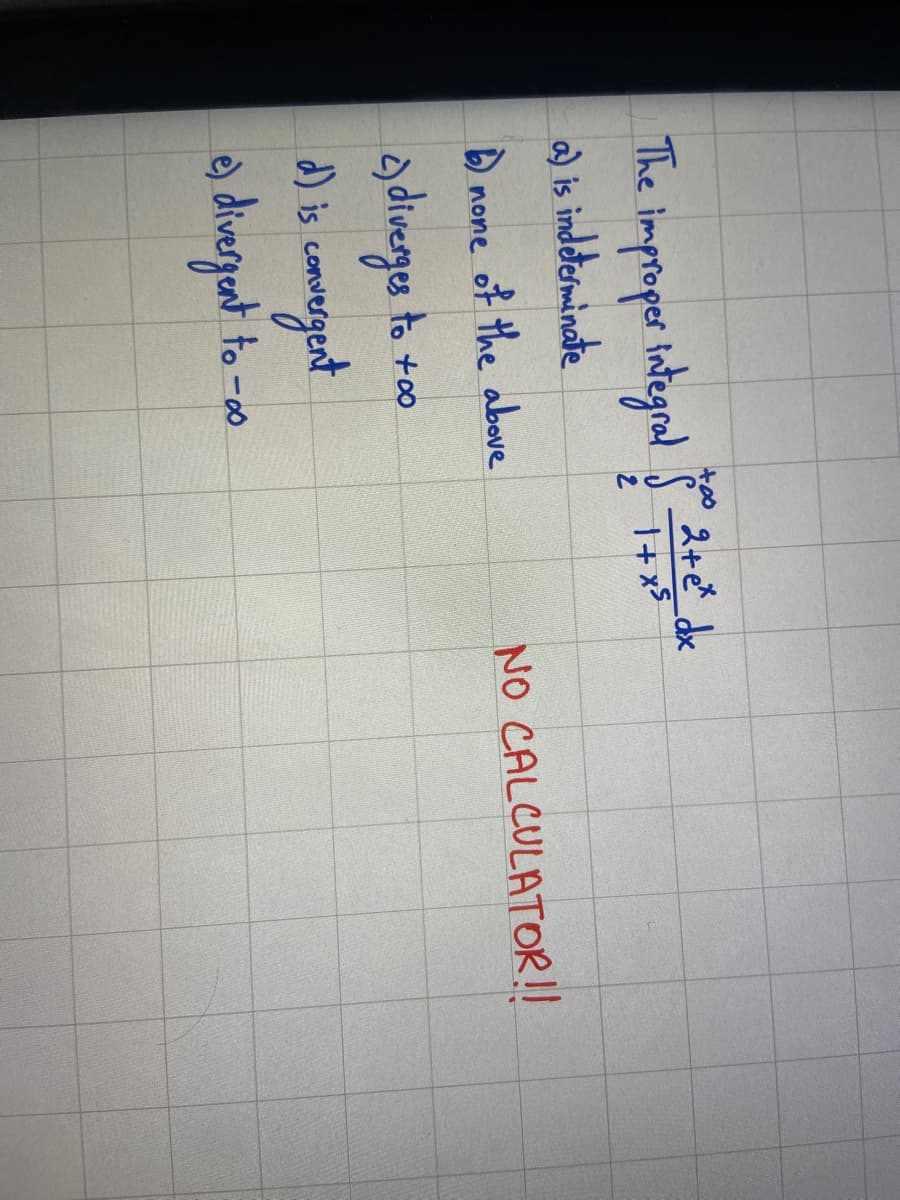 The improper integral ∫₂^{+∞} (2+eˣ)/(1+x⁵) dx
a) is indeterminate
b) none of the above
c) diverges to +∞
d) is convergent
e) divergent to -∞
NO CALCULATOR!!